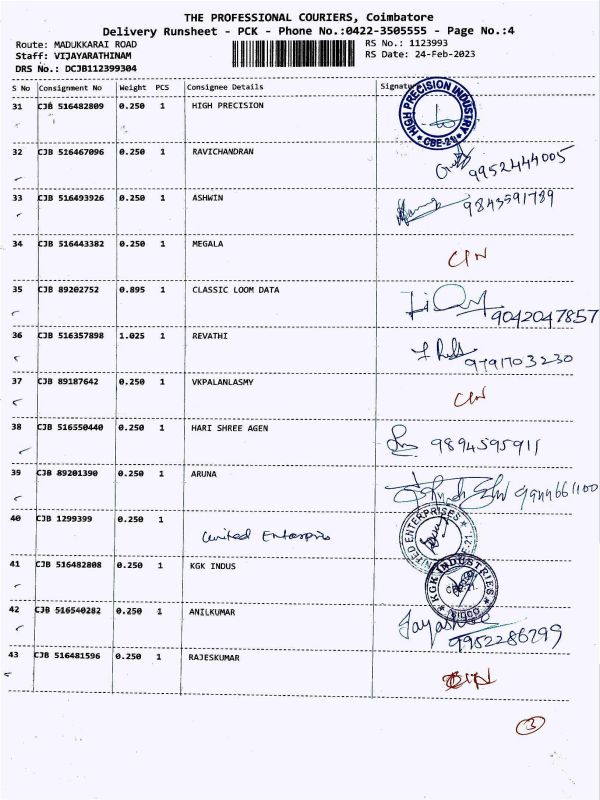 THE PROFESSIONAL COURIERS, Coimbatore
Delivery Runsheet - PCK - Phone No.:0422-3505555 - Page No.:4
Route: MADUKKARAI ROAD RS No.: 1123993
Staff: VIJAYARATHINAM RS Date: 24-Feb-2023
DRS No.: DCJB112399304
S No Consignment No Weight PCS Consignee Details Signatu
31 CJB 516482809 0.250 1 HIGH PRECISION
HIGH PRECISION INDUSTRY CBE-21
32 CJB 516467096 0.250 1 RAVICHANDRAN
9952444005
33 CJB 516493926 0.250 1 ASHWIN 9843591789
34 CJB 516443382 0.250 1 MEGALA CIN
35 CJB 89202752 0.895 1 CLASSIC LOOM DATA
9042047857
36 CJB 516357898 1.025 1 REVATHI
9791703230
37 CJB 89187642 0.250 1 VKPALANLASMY CIN
38 CJB 516550440 0.250 1 HARI SHREE AGEN 9894595911
39 CJB 89201390 0.250 1 ARUNA 9944661100
40 CJB 1299399 0.250 1 United Enterpris
UNITED ENTERPRISES
41 CJB 516482808 0.250 1 KGK INDUS
KGK INDUSTRIES CBE-21. SIDCO
42 CJB 516540282 0.250 1 ANILKUMAR
9952286299
43 CJB 516481596 0.250 1 RAJESKUMAR
3